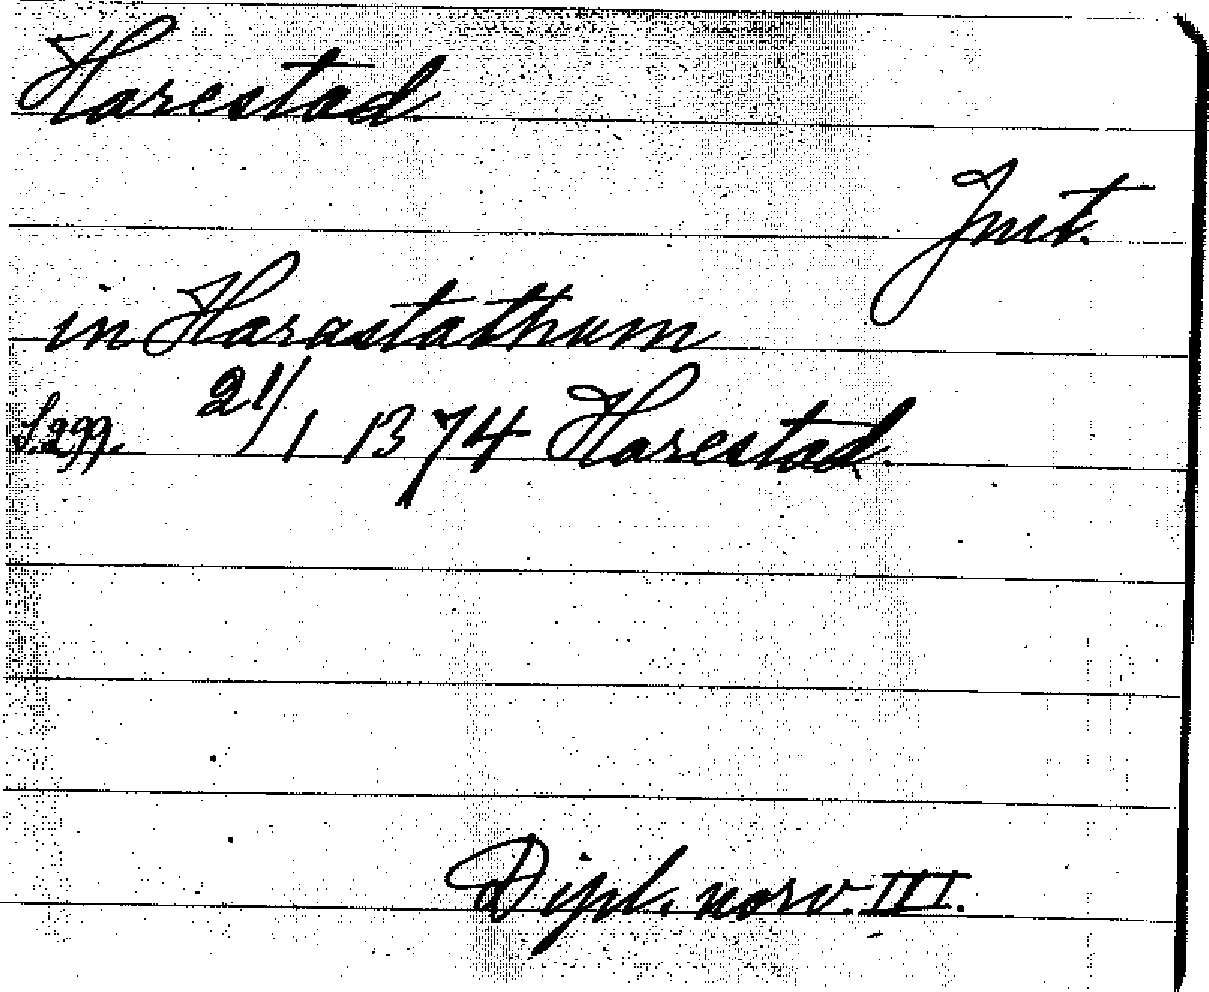 Harestad.
Jmt.
in Harastathum
S. 299. 21/1 1374 Harestad.
Dipl. norv. III.